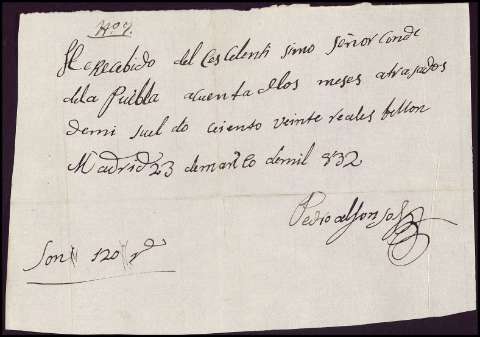 Nº 7.
He Recebido del Cescelenti simo señor conde
dela Puebla acuenta dlos meses atrasados
demi suel do ciento veinte reales bellon
Madrid 23 demarzo demil 832
Pedro alfonso
Son 120 rs